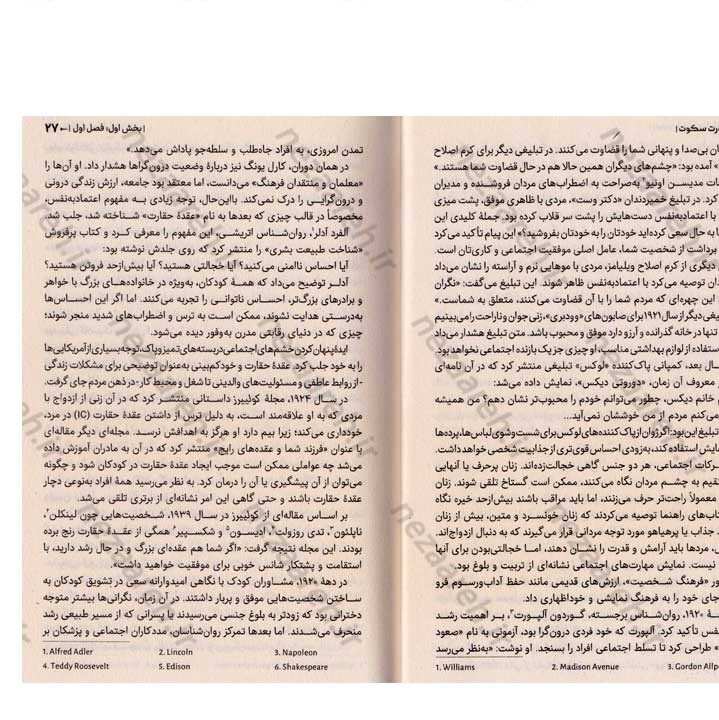 رت سکوت |
ان بی‌صدا و پنهانی شما را قضاوت می‌کنند. در تبلیغی دیگر برای کرم اصلاح
» آمده بود: «چشم‌های دیگران همین حالا هم در حال قضاوت شما هستند.»
ات مدیسن اونیو² به‌صراحت به اضطراب‌های مردان فروشنده و مدیران
کرد. در تبلیغ خمیردندان «دکتر وست»، مردی با ظاهری موفق، پشت میزی
با اعتمادبه‌نفس دست‌هایش را پشت سر قلاب کرده بود. جملهٔ کلیدی این
ا به حال سعی کرده‌اید خودتان را به خودتان بفروشید؟» این پیام تأکید می‌کرد
برداشت از شخصیت شما، عامل اصلی موفقیت اجتماعی و کاری‌تان است.
دیگری از کرم اصلاح ویلیامز، مردی با موهایی نرم و آراسته را نشان می‌داد
دان توصیه می‌کرد با اعتمادبه‌نفس ظاهر شوند. این تبلیغ می‌گفت: «نگران
این چهره‌ای که مردم شما را با آن قضاوت می‌کنند، متعلق به شماست.»
یغی دیگر از سال ۱۹۲۱ برای صابون‌های «وودبری»، زنی جوان و ناراحت را می‌بینیم
تنها در خانه گذرانده و آرزو دارد موفق و محبوب باشد. متن تبلیغ هشدار می‌داد
ستفاده از لوازم بهداشتی مناسب، او چیزی جز یک بازنده اجتماعی نخواهد بود.
ال بعد، کمپانی پاک‌کننده «لوکس» تبلیغی منتشر کرد که در آن نامه‌ای
معروف آن زمان، «دوروتی دیکس»، نمایش داده می‌شد:
م خانم دیکس، چطور می‌توانم خودم را محبوب‌تر نشان دهم؟ من همیشه
می‌کنم مردم از من خوششان نمی‌آید...
تبلیغ این بود: اگر ژوان از پاک‌کننده‌های لوکس برای شست‌وشوی لباس‌ها، پرده‌ها
مایش استفاده کند، به‌زودی احساس قوی‌تری از جذابیت شخصی خواهد داشت.
رکات اجتماعی، هر دو جنس گاهی خجالت‌زده‌اند. زنان پرحرف یا آنهایی
تقیم به چشم مردان نگاه می‌کنند، ممکن است گستاخ تلقی شوند. زنان
معمولاً راحت‌تر حرف می‌زنند، اما باید مراقب باشند بیش‌ازحد خیره نگاه
تاب‌های راهنما توصیه می‌کردند که زنان خونسرد و متین، بیش از زنان
جذاب یا پرهیاهو مورد توجه مردانی قرار می‌گیرند که به دنبال ازدواج‌اند.
، مردها باید آرامش و قدرت را نشان دهند، اما خجالتی‌بودن برای آنها
نیست. نمایش مهارت‌های اجتماعی نشانه‌ای از تربیت و بلوغ بود.
ور «فرهنگ شخصیت»، ارزش‌های قدیمی مانند حفظ آداب‌ورسوم فرو
جای خود را به فرهنگ نمایشی و خوداظهاری داد.
ۀ ۱۹۲۰، روان‌شناس برجسته، گوردون آلپورت³، بر اهمیت رشد
نفس تأکید کرد. آلپورت که خود فردی درون‌گرا بود، آزمونی به نام «صعود
» طراحی کرد تا تسلط اجتماعی افراد را بسنجد. او نوشت: «به‌نظر می‌رسد
1. Williams 2. Madison Avenue 3. Gordon Allpo
| بخش اول؛ فصل اول |← ۲۷
تمدن امروزی، به افراد جاه‌طلب و سلطه‌جو پاداش می‌دهد.»
در همان دوران، کارل یونگ نیز دربارهٔ وضعیت درون‌گراها هشدار داد. او آن‌ها را
«معلمان و منتقدان فرهنگ» می‌دانست، اما معتقد بود جامعه، ارزش زندگی درونی
و درون‌گرایی را درک نمی‌کند. بااین‌حال، توجه زیادی به مفهوم اعتمادبه‌نفس،
مخصوصاً در قالب چیزی که بعدها به نام «عقدهٔ حقارت» شناخته شد، جلب شد.
آلفرد آدلر¹، روان‌شناس اتریشی، این مفهوم را معرفی کرد و کتاب پرفروش
«شناخت طبیعت بشری» را منتشر کرد که روی جلدش نوشته بود:
آیا احساس ناامنی می‌کنید؟ آیا خجالتی هستید؟ آیا بیش‌ازحد فروتن هستید؟
آدلر توضیح می‌داد که همهٔ کودکان، به‌ویژه در خانواده‌های بزرگ با خواهر
و برادرهای بزرگ‌تر، احساس ناتوانی را تجربه می‌کنند. اما اگر این احساس‌ها
به‌درستی هدایت نشوند، ممکن است به ترس و اضطراب‌های شدید منجر شوند؛
چیزی که در دنیای رقابتی مدرن به‌وفور دیده می‌شود.
ایدهٔ پنهان کردن خشم‌های اجتماعی در بسته‌های تمیز و پاک، توجه بسیاری از آمریکایی‌ها
را به خود جلب کرد. عقدهٔ حقارت و خودکم‌بینی به‌عنوان توضیحی برای مشکلات زندگی
-از روابط عاطفی و مسئولیت‌های والدینی تا شغل و محیط کار- در ذهن مردم جای گرفت.
در سال ۱۹۲۴، مجلهٔ کولییرز داستانی منتشر کرد که در آن زنی از ازدواج با
مردی که به او علاقه‌مند است، به دلیل ترس از داشتن عقدهٔ حقارت (IC) در مرد،
خودداری می‌کند؛ زیرا بیم دارد او هرگز به اهدافش نرسد. مجله‌ای دیگر مقاله‌ای
با عنوان «فرزند شما و عقده‌های رایج» منتشر کرد که در آن به مادران آموزش داده
می‌شد چه عواملی ممکن است موجب ایجاد عقدهٔ حقارت در کودکان شود و چگونه
می‌توان از آن پیشگیری یا آن را درمان کرد. به نظر می‌رسید همهٔ افراد به‌نوعی دچار
عقدهٔ حقارت باشند و حتی گاهی این امر نشانه‌ای از برتری تلقی می‌شد.
بر اساس مقاله‌ای از کولییرز در سال ۱۹۳۹، شخصیت‌هایی چون لینکلن²،
ناپلئون³، تدی روزولت⁴، ادیسون⁵ و شکسپیر⁶ همگی از عقدهٔ حقارت رنج برده
بودند. این مجله نتیجه گرفت: «اگر شما هم عقده‌ای بزرگ و در حال رشد دارید، با
استقامت و پشتکار شانس خوبی برای موفقیت خواهید داشت.»
در دههٔ ۱۹۲۰، مشاوران کودک با نگاهی امیدوارانه سعی در تشویق کودکان به
ساختن شخصیت‌هایی موفق و پربار داشتند. در آن زمان، نگرانی‌ها بیشتر متوجه
دخترانی بود که زودتر به بلوغ جنسی می‌رسیدند یا پسرانی که از مسیر طبیعی رشد
منحرف می‌شدند. اما بعدها تمرکز روان‌شناسان، مددکاران اجتماعی و پزشکان بر
1. Alfred Adler 2. Lincoln 3. Napoleon
4. Teddy Roosevelt 5. Edison 6. Shakespeare